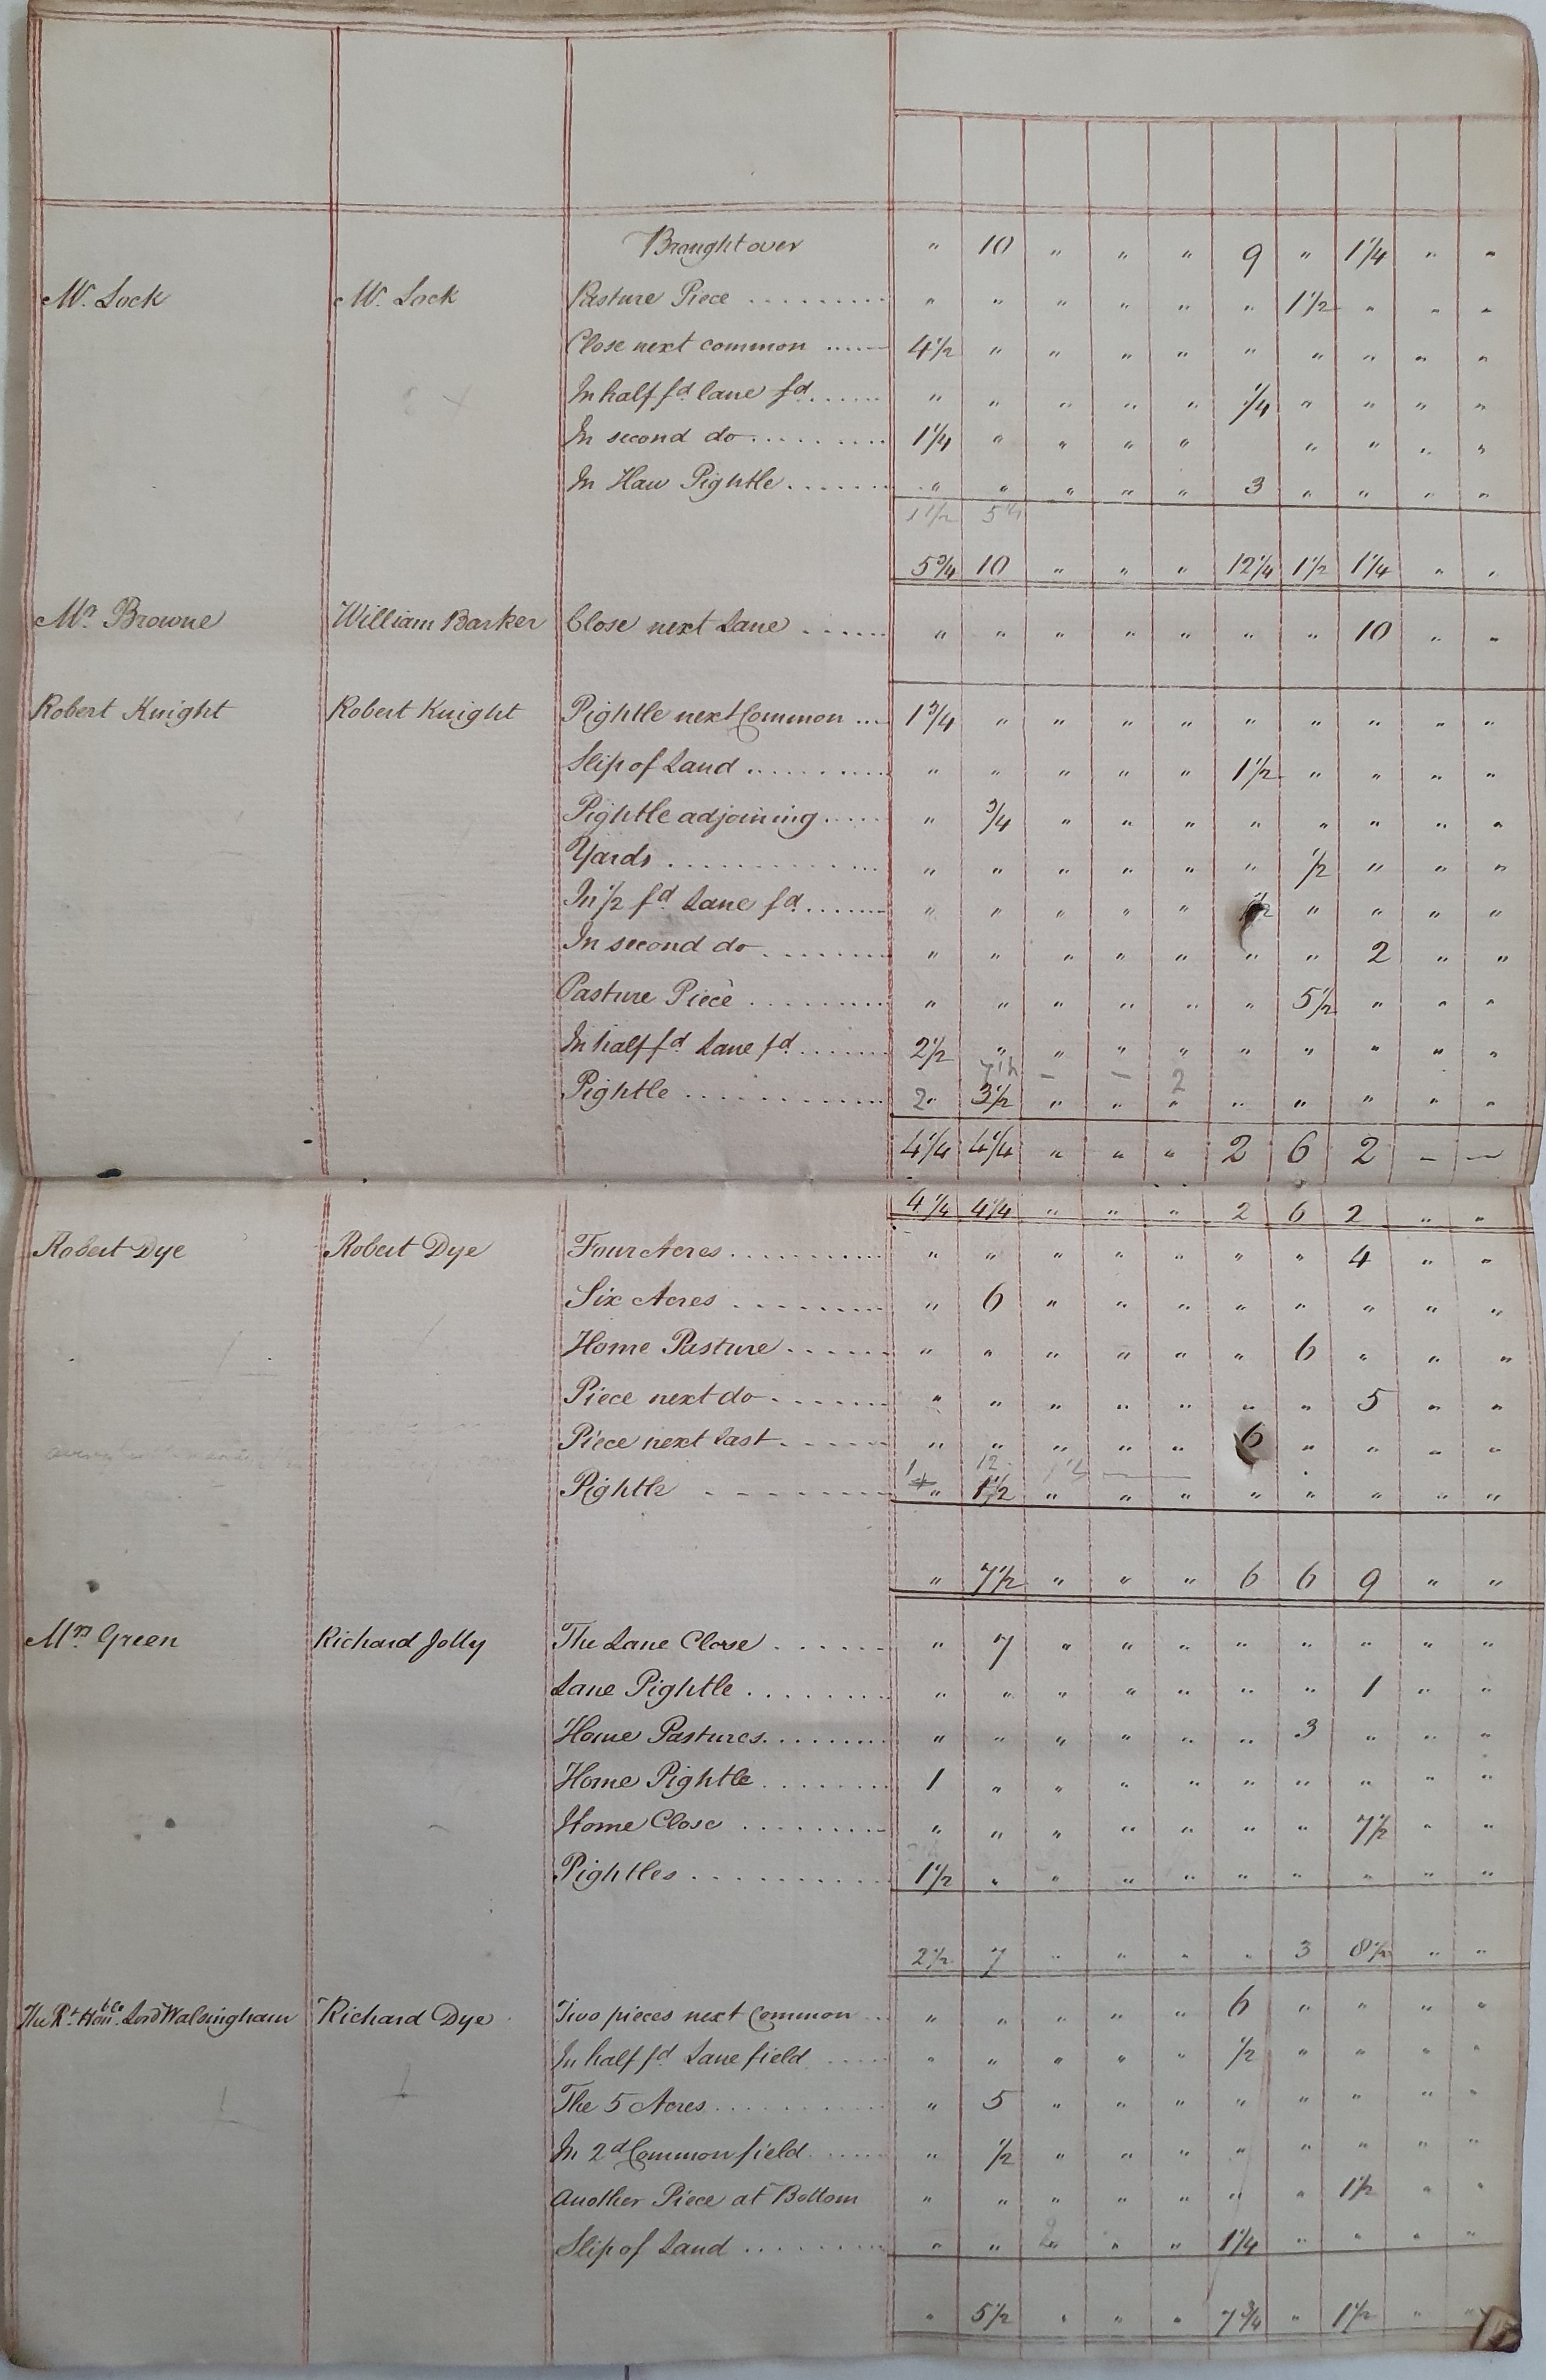 Brought over " 10 " " " 9 " 1 1/4 " "
Mr. Lock Mr. Lock Pasture Piece ......... " " " " " " 1 1/2 " " "
Close next common ...... 4 1/2 " " " " " " " " "
In half fd. lane fd. ...... " " " " " 1/4 " " " "
In second do ......... 1 1/4 " " " " " " " "
In Haw Pightle ....... " " " " " 3 " " " "
1 1/2
5 3/4 10 " " " 12 1/4 1 1/2 1 1/4 " "
Mr. Browne William Barker Close next Lane ...... " " " " " " " 10 " "
Robert Knight Robert Knight Pightle next Common ... 1 3/4 " " " " " " " " "
Slip of Land ......... " " " " " 1 1/2 " " " "
Pightle adjoining ..... " 3/4 " " " " " " " "
Yards ............ " " " " " " 1/2 " " "
In 1/2 fd. Lane fd. ....... " " " " " 1/2 " " " "
In second do ......... " " " " " " " 2 " "
Pasture Piece ......... " " " " " " 5 1/2 " " "
In half fd. Lane fd. ....... 2 1/2 " " " " " " " " "
— — 2
Pightle ............ 2 " 3 1/2 " " " " " " " "
4 1/4 4 1/4 " " " 2 6 2 — —
4 1/4 4 1/4 " " " 2 6 2 " "
Robert Dye Robert Dye Four Acres ......... " " " " " " " 4 " "
Six Acres ......... " 6 " " " " " " " "
Home Pasture ...... " " " " " " 6 " " "
Piece next do ....... " " " " " " " 5 " "
Piece next Last ...... " " " " " 6 " " " "
1 12
Pightle ......... " 1 1/2 " " " " " " " "
" 7 1/2 " " " 6 6 9 " "
Mrs. Green Richard Jolly The Lane Close ...... " 7 " " " " " " " "
Lane Pightle ........ " " " " " " " 1 " "
Home Pastures ........ " " " " " " 3 " " "
Home Pightle ........ 1 " " " " " " " " "
Home Close ......... " " " " " " " 7 1/2 " "
Pightles .......... 1 1/2 " " " " " " " " "
2 1/2 7 " " " " 3 8 1/2 " "
The Rt. Honble. Lord Walsingham Richard Dye Two pieces next Common ... " " " " " 6 " " " "
In half fd. Lane field ..... " " " " " 1/2 " " " "
The 5 Acres .......... " 5 " " " " " " " "
In 2d Common field ...... " 1/2 " " " " " " " "
Another Piece at Bottom " " " " " " " 1 1/2 " "
Slip of Land ......... " " 2 " " " 1 1/4 " " " "
" 5 1/2 " " " 7 3/4 " 1 1/2 " "